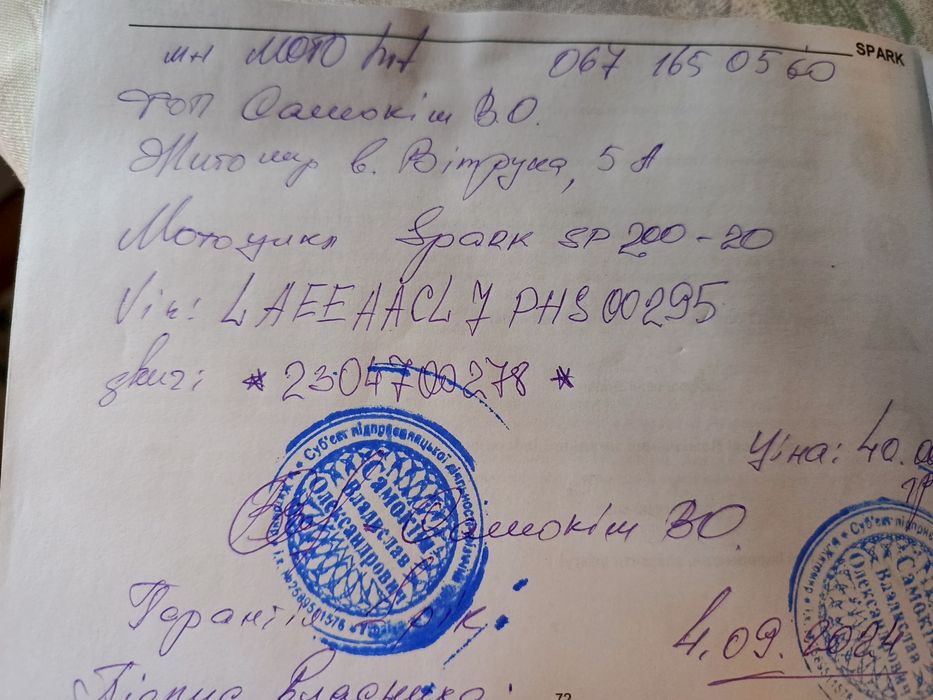 SPARK
мн МОТО 067 165 05 60
ФОП Самокіш В.О.
Житомир в. Вітрука, 5 А
Мотоцикл Spark SP 200-20
Vin: LAEEAACL7PHS00295
двиг: * 2304700278 *
Ціна: 40.00
Суб'єкт підприємницької діяльності
Самокіш
Владислав
Олександрович
Самокіш ВО.
Гарантія 1 рік.
4.09.2024
Підпис Власника:
72